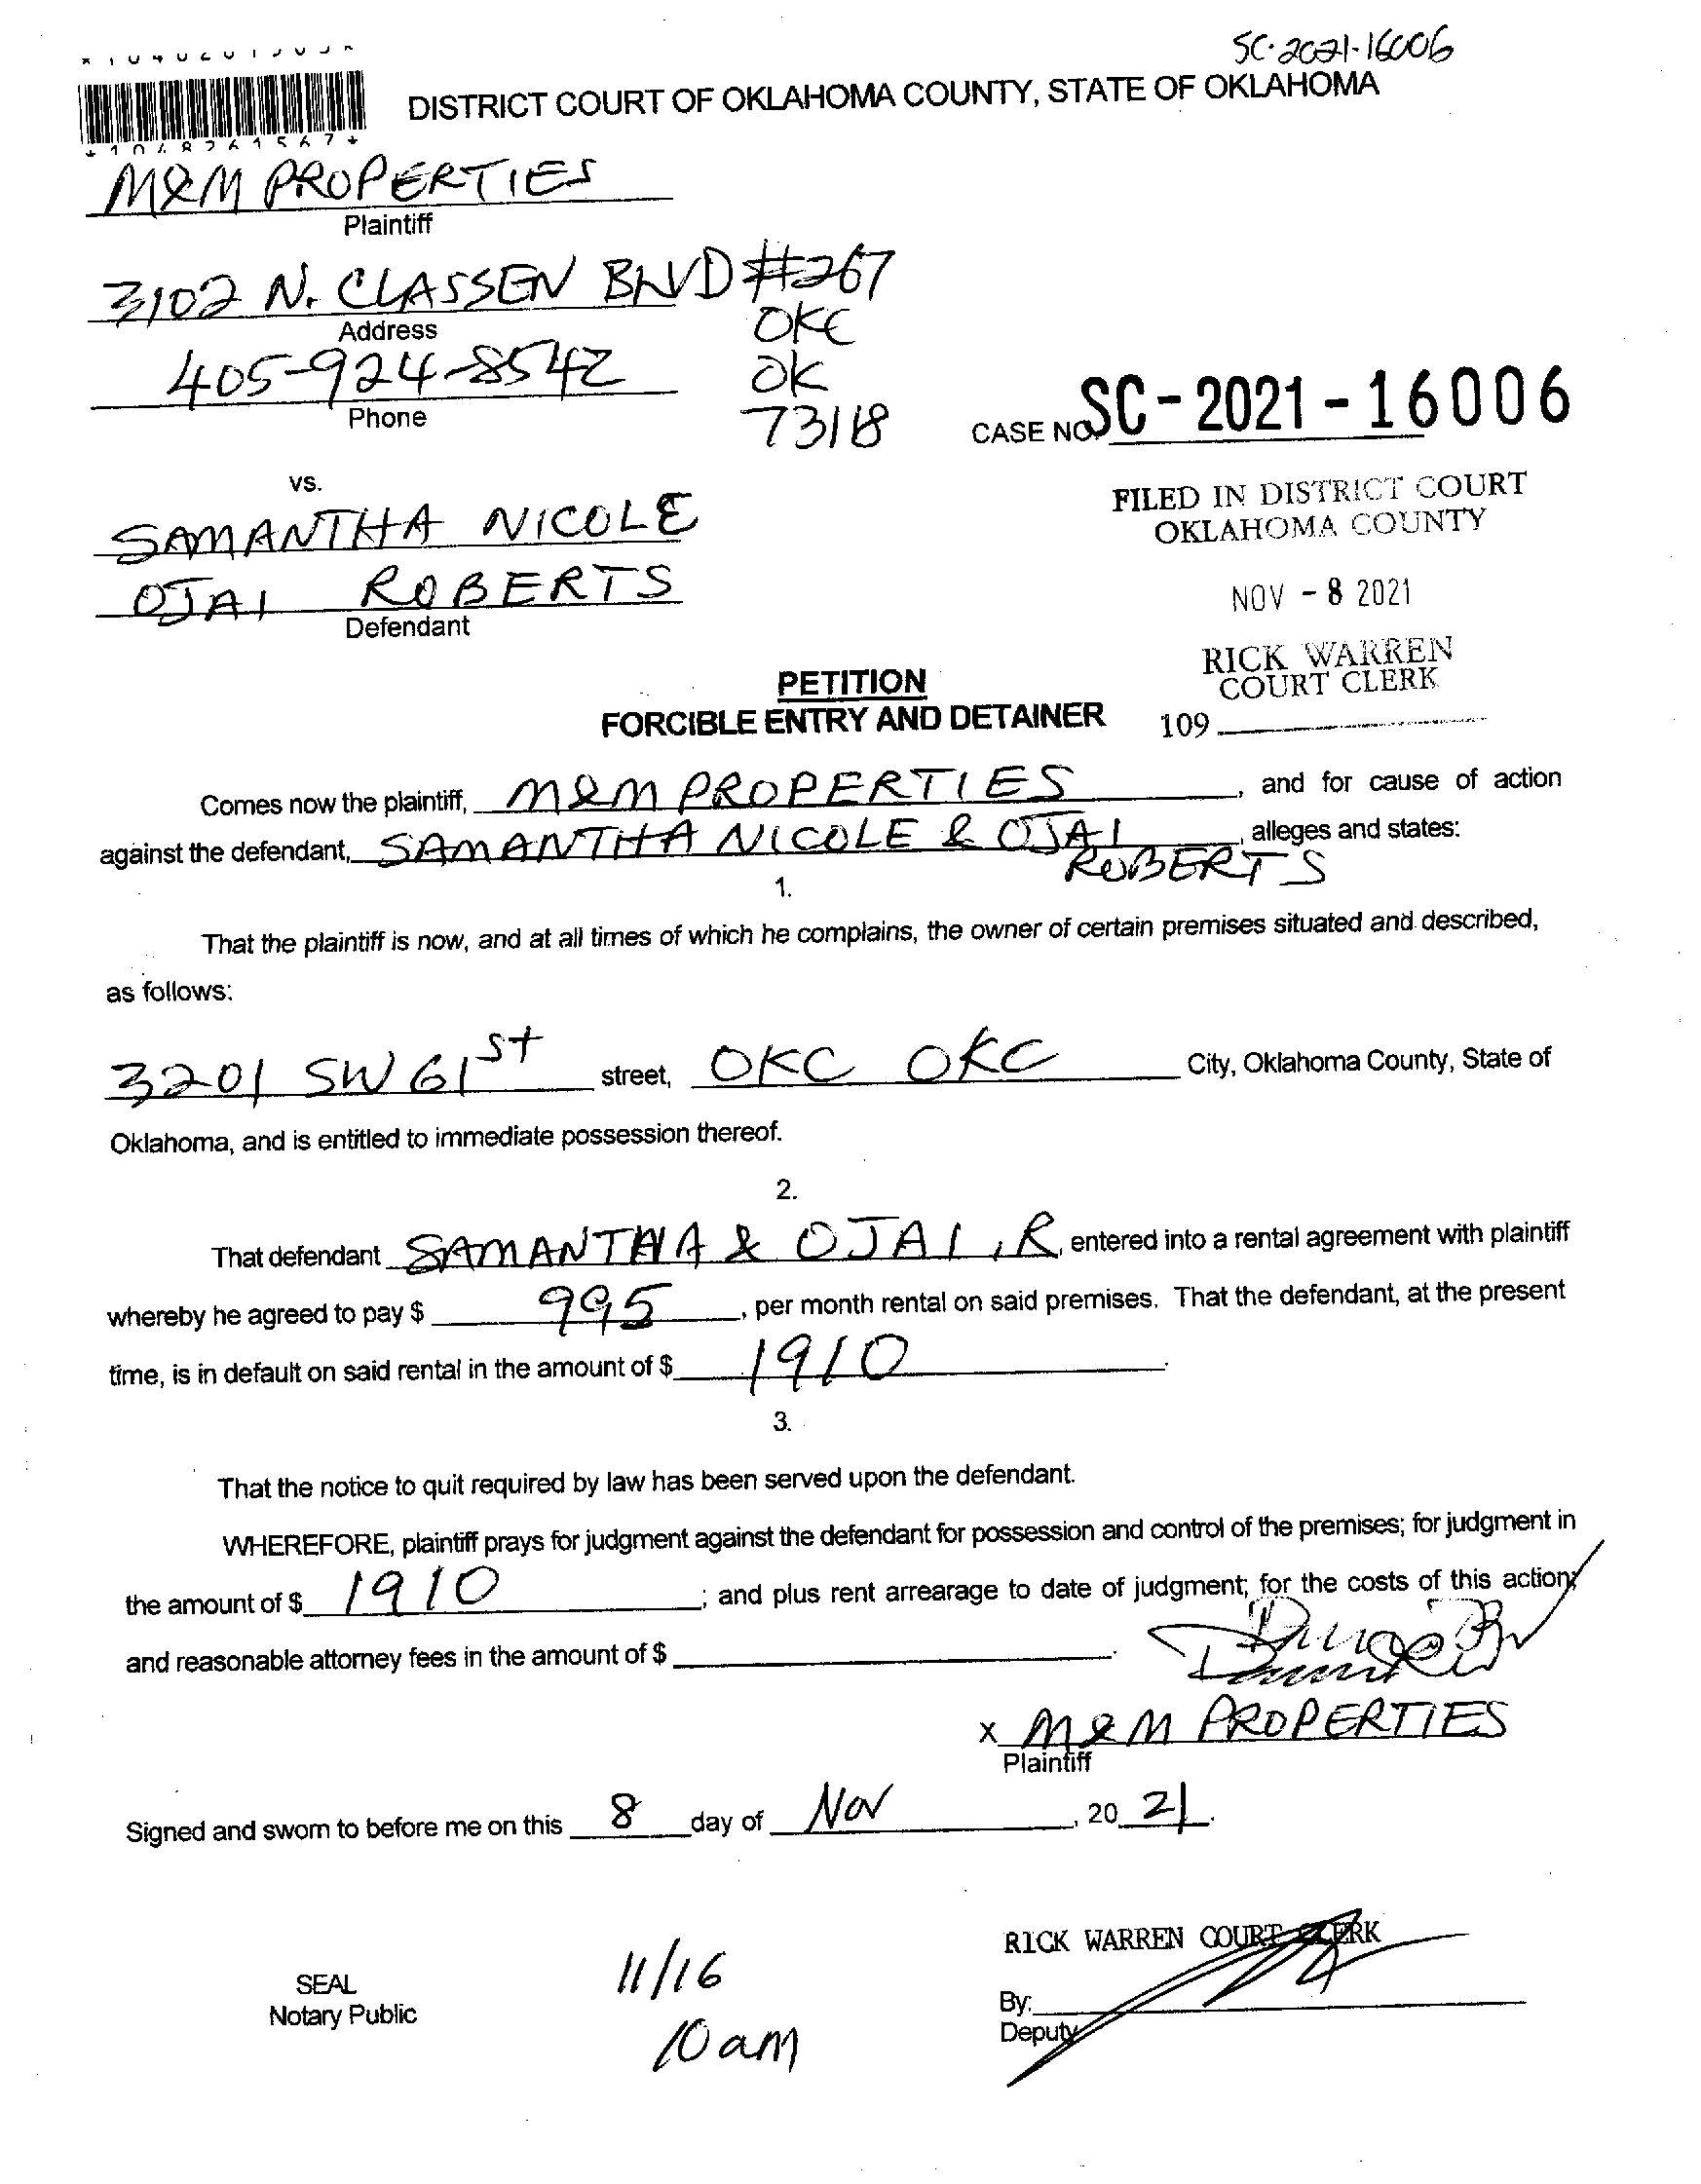 SC-2021-16006
DISTRICT COURT OF OKLAHOMA COUNTY, STATE OF OKLAHOMA
M&M PROPERTIES
Plaintiff
3102 N. CLASSEN BLVD #267
Address
OKC
405-924-8542
OK
Phone
73118
CASE NO. SC-2021-16006
vs.
FILED IN DISTRICT COURT
OKLAHOMA COUNTY
SAMANTHA NICOLE
OJAI ROBERTS
Defendant
NOV - 8 2021
RICK WARREN
COURT CLERK
109
PETITION
FORCIBLE ENTRY AND DETAINER
Comes now the plaintiff, M&M PROPERTIES, and for cause of action
against the defendant, SAMANTHA NICOLE & OJAI, alleges and states:
ROBERTS
1.
That the plaintiff is now, and at all times of which he complains, the owner of certain premises situated and described,
as follows:
3201 SW 61st street, OKC OKC City, Oklahoma County, State of
Oklahoma, and is entitled to immediate possession thereof.
2.
That defendant SAMANTHA & OJAI, R, entered into a rental agreement with plaintiff
whereby he agreed to pay $ 995, per month rental on said premises. That the defendant, at the present
time, is in default on said rental in the amount of $ 1910.
3.
That the notice to quit required by law has been served upon the defendant.
WHEREFORE, plaintiff prays for judgment against the defendant for possession and control of the premises; for judgment in
the amount of $ 1910; and plus rent arrearage to date of judgment; for the costs of this action;
and reasonable attorney fees in the amount of $ .
X M&M PROPERTIES
Plaintiff
Signed and sworn to before me on this 8 day of Nov, 20 21.
RICK WARREN COURT CLERK
SEAL
Notary Public
11/16
10 am
By:
Deputy